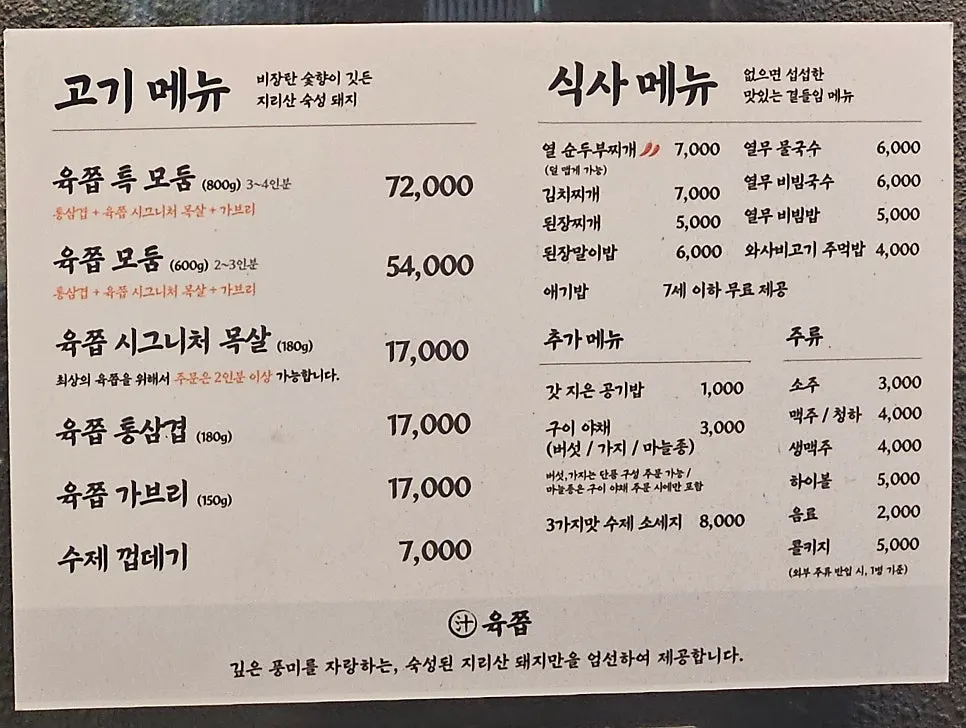 고기 메뉴
비장탄 숯향이 깃든
지리산 숙성 돼지
육쯉 특 모둠 (800g) 3~4인분 72,000
통삼겹 + 육쯉 시그니처 목살 + 가브리
육쯉 모둠 (600g) 2~3인분 54,000
통삼겹 + 육쯉 시그니처 목살 + 가브리
육쯉 시그니처 목살 (180g) 17,000
최상의 육쯉을 위해서 주문은 2인분 이상 가능합니다.
육쯉 통삼겹 (180g) 17,000
육쯉 가브리 (150g) 17,000
수제 껍데기 7,000
식사 메뉴
없으면 섭섭한
맛있는 곁들임 메뉴
열 순두부찌개 7,000
(덜 맵게 가능)
김치찌개 7,000
된장찌개 5,000
된장말이밥 6,000
애기밥 7세 이하 무료 제공
열무 물국수 6,000
열무 비빔국수 6,000
열무 비빔밥 5,000
와사비고기 주먹밥 4,000
추가 메뉴
갓 지은 공기밥 1,000
구이 야채 3,000
(버섯 / 가지 / 마늘종)
버섯,가지는 단품 구성 주문 가능 /
마늘종은 구이 야채 주문 시에만 포함
3가지맛 수제 소세지 8,000
주류
소주 3,000
맥주 / 청하 4,000
생맥주 4,000
하이볼 5,000
음료 2,000
콜키지 5,000
(외부 주류 반입 시, 1병 기준)
汁 육쯉
깊은 풍미를 자랑하는, 숙성된 지리산 돼지만을 엄선하여 제공합니다.